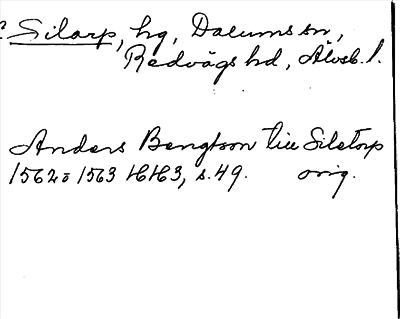 Silarp, hg, Dalums sn,
Redvägs hd, Älvsb. l.
Anders Bengtson till Siletorp
1562 o 1563 HH3, s. 49. orig.